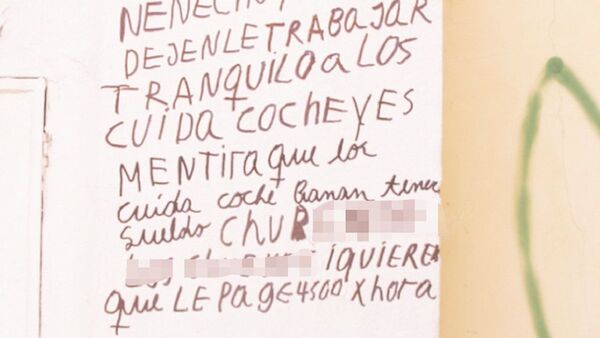 DEJENLETRABAJAR
TRANQUILO a LOS
CUIDA COCHEYES
MENTIRa que los
cuida coche Banan tener
sueldo CHUR
iQUIEREN
que LE PagE4500 X hora